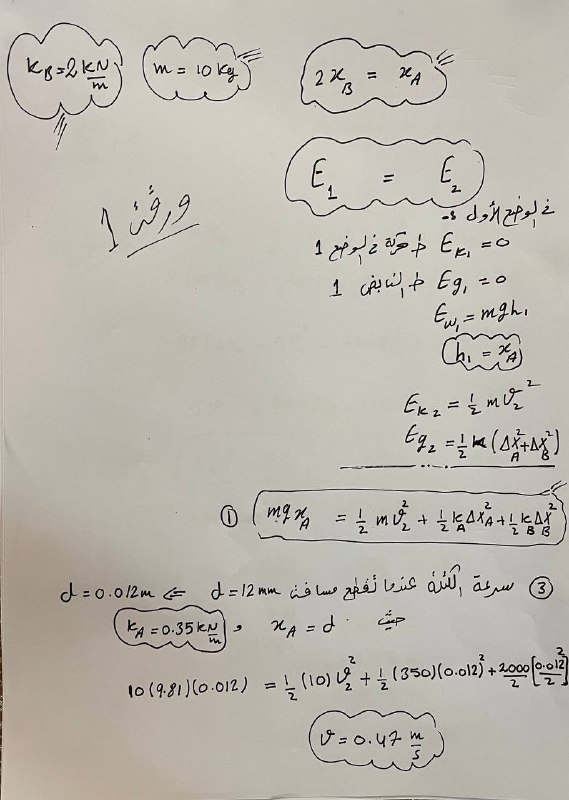 K_B = 2 kN/m m = 10 kg 2x_B = x_A
E_1 = E_2
ورقة 1
في الوضع الأول :-
E_K1 = 0 ط حركية في الوضع 1
E_g1 = 0 ط النابض 1
E_w1 = mgh_1
h_1 = x_A
E_K2 = 1/2 m v_2^2
E_g2 = 1/2 k (Δx_A^2 + Δx_B^2)
① mg x_A = 1/2 m v_2^2 + 1/2 k_A Δx_A^2 + 1/2 k_B Δx_B^2
③ سرعة الكتلة عندما تقطع مسافة d = 12 mm ⇐ d = 0.012 m
حيث x_A = d و k_A = 0.35 kN/m
10(9.81)(0.012) = 1/2 (10) v_2^2 + 1/2 (350)(0.012)^2 + 2000/2 [0.012/2]^2
v = 0.47 m/s